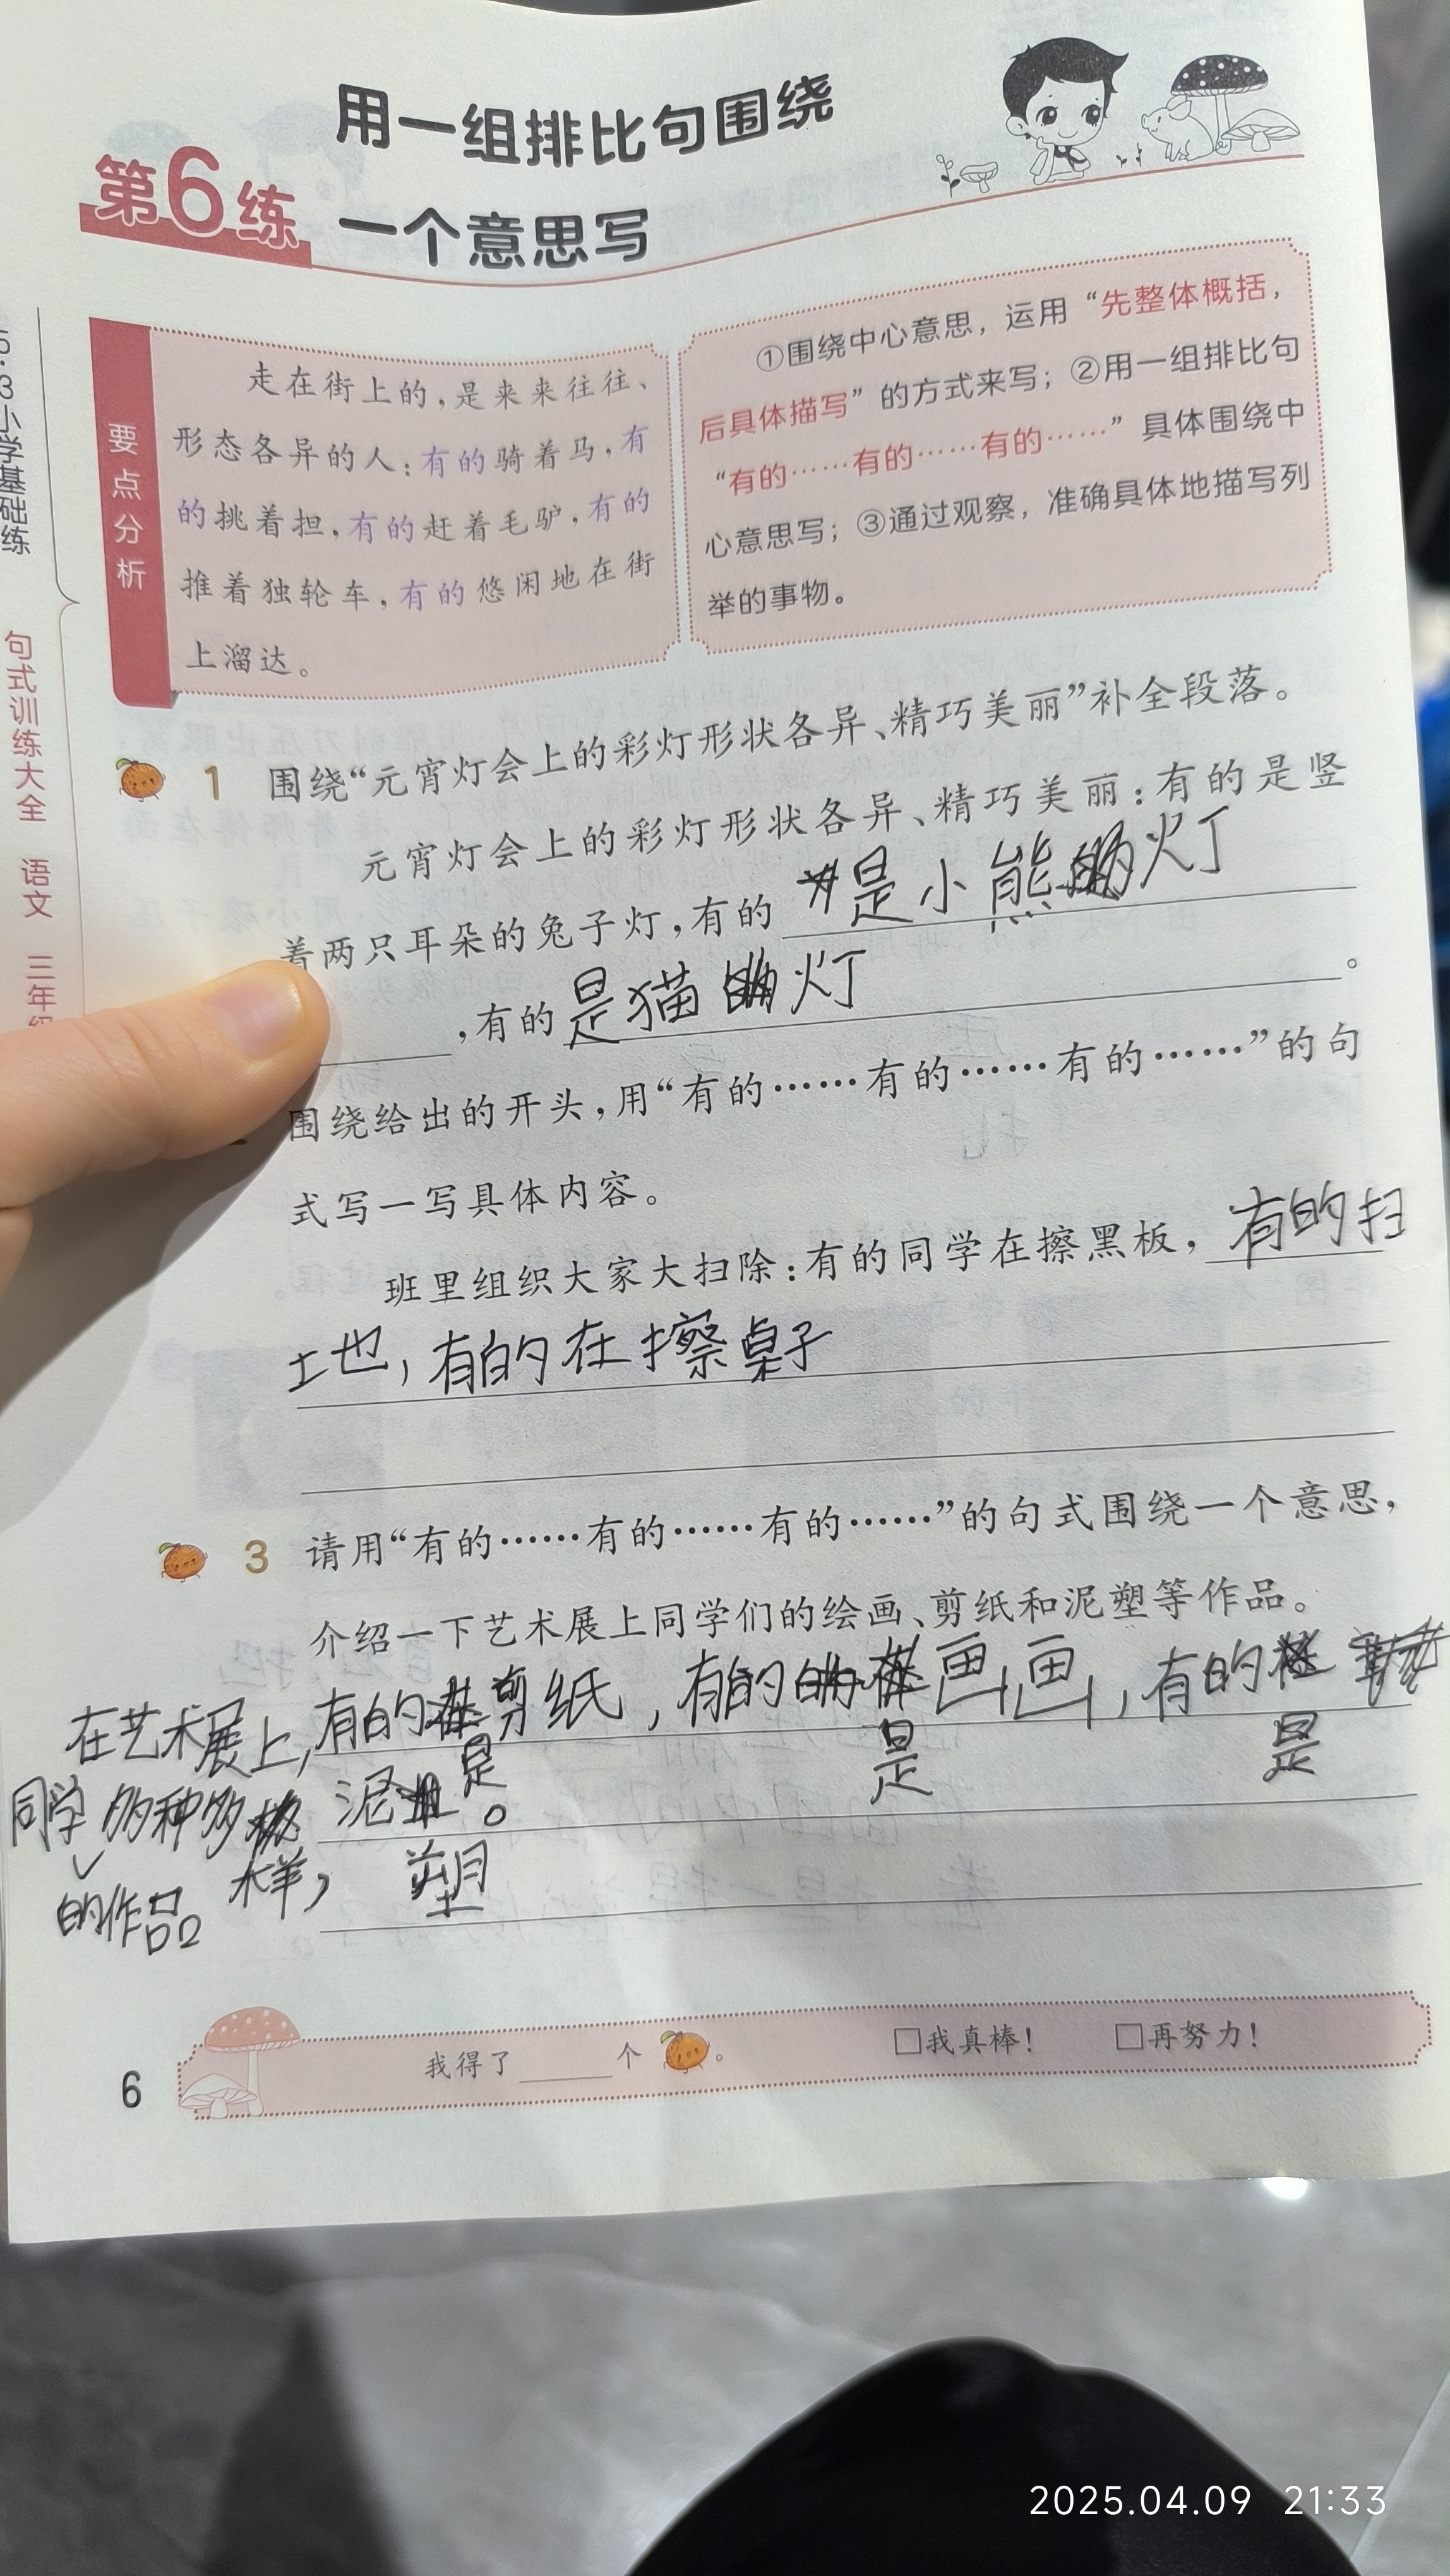 用一组排比句围绕
第6练
一个意思写
5·3小学基础练
句式训练大全 语文 三年级
要点分析
走在街上的,是来来往往、
形态各异的人:有的骑着马,有
的挑着担,有的赶着毛驴,有的
推着独轮车,有的悠闲地在街
上溜达。
①围绕中心意思，运用“先整体概括，
后具体描写”的方式来写；②用一组排比句
“有的……有的……有的……”具体围绕中
心意思写；③通过观察，准确具体地描写列
举的事物。
1 围绕“元宵灯会上的彩灯形状各异、精巧美丽”补全段落。
元宵灯会上的彩灯形状各异、精巧美丽:有的是竖
着两只耳朵的兔子灯,有的是小熊灯
,有的是猫灯。
围绕给出的开头,用“有的……有的……有的……”的句
式写一写具体内容。
班里组织大家大扫除:有的同学在擦黑板,有的扫
地,有的在擦桌子
3 请用“有的……有的……有的……”的句式围绕一个意思,
介绍一下艺术展上同学们的绘画、剪纸和泥塑等作品。
在艺术展上,有的剪纸,有的画画,有的
是 是 是
同学 多种多 泥。
的作品 样, 塑
6
我得了 个 。 □我真棒! □再努力!
2025.04.09 21:33